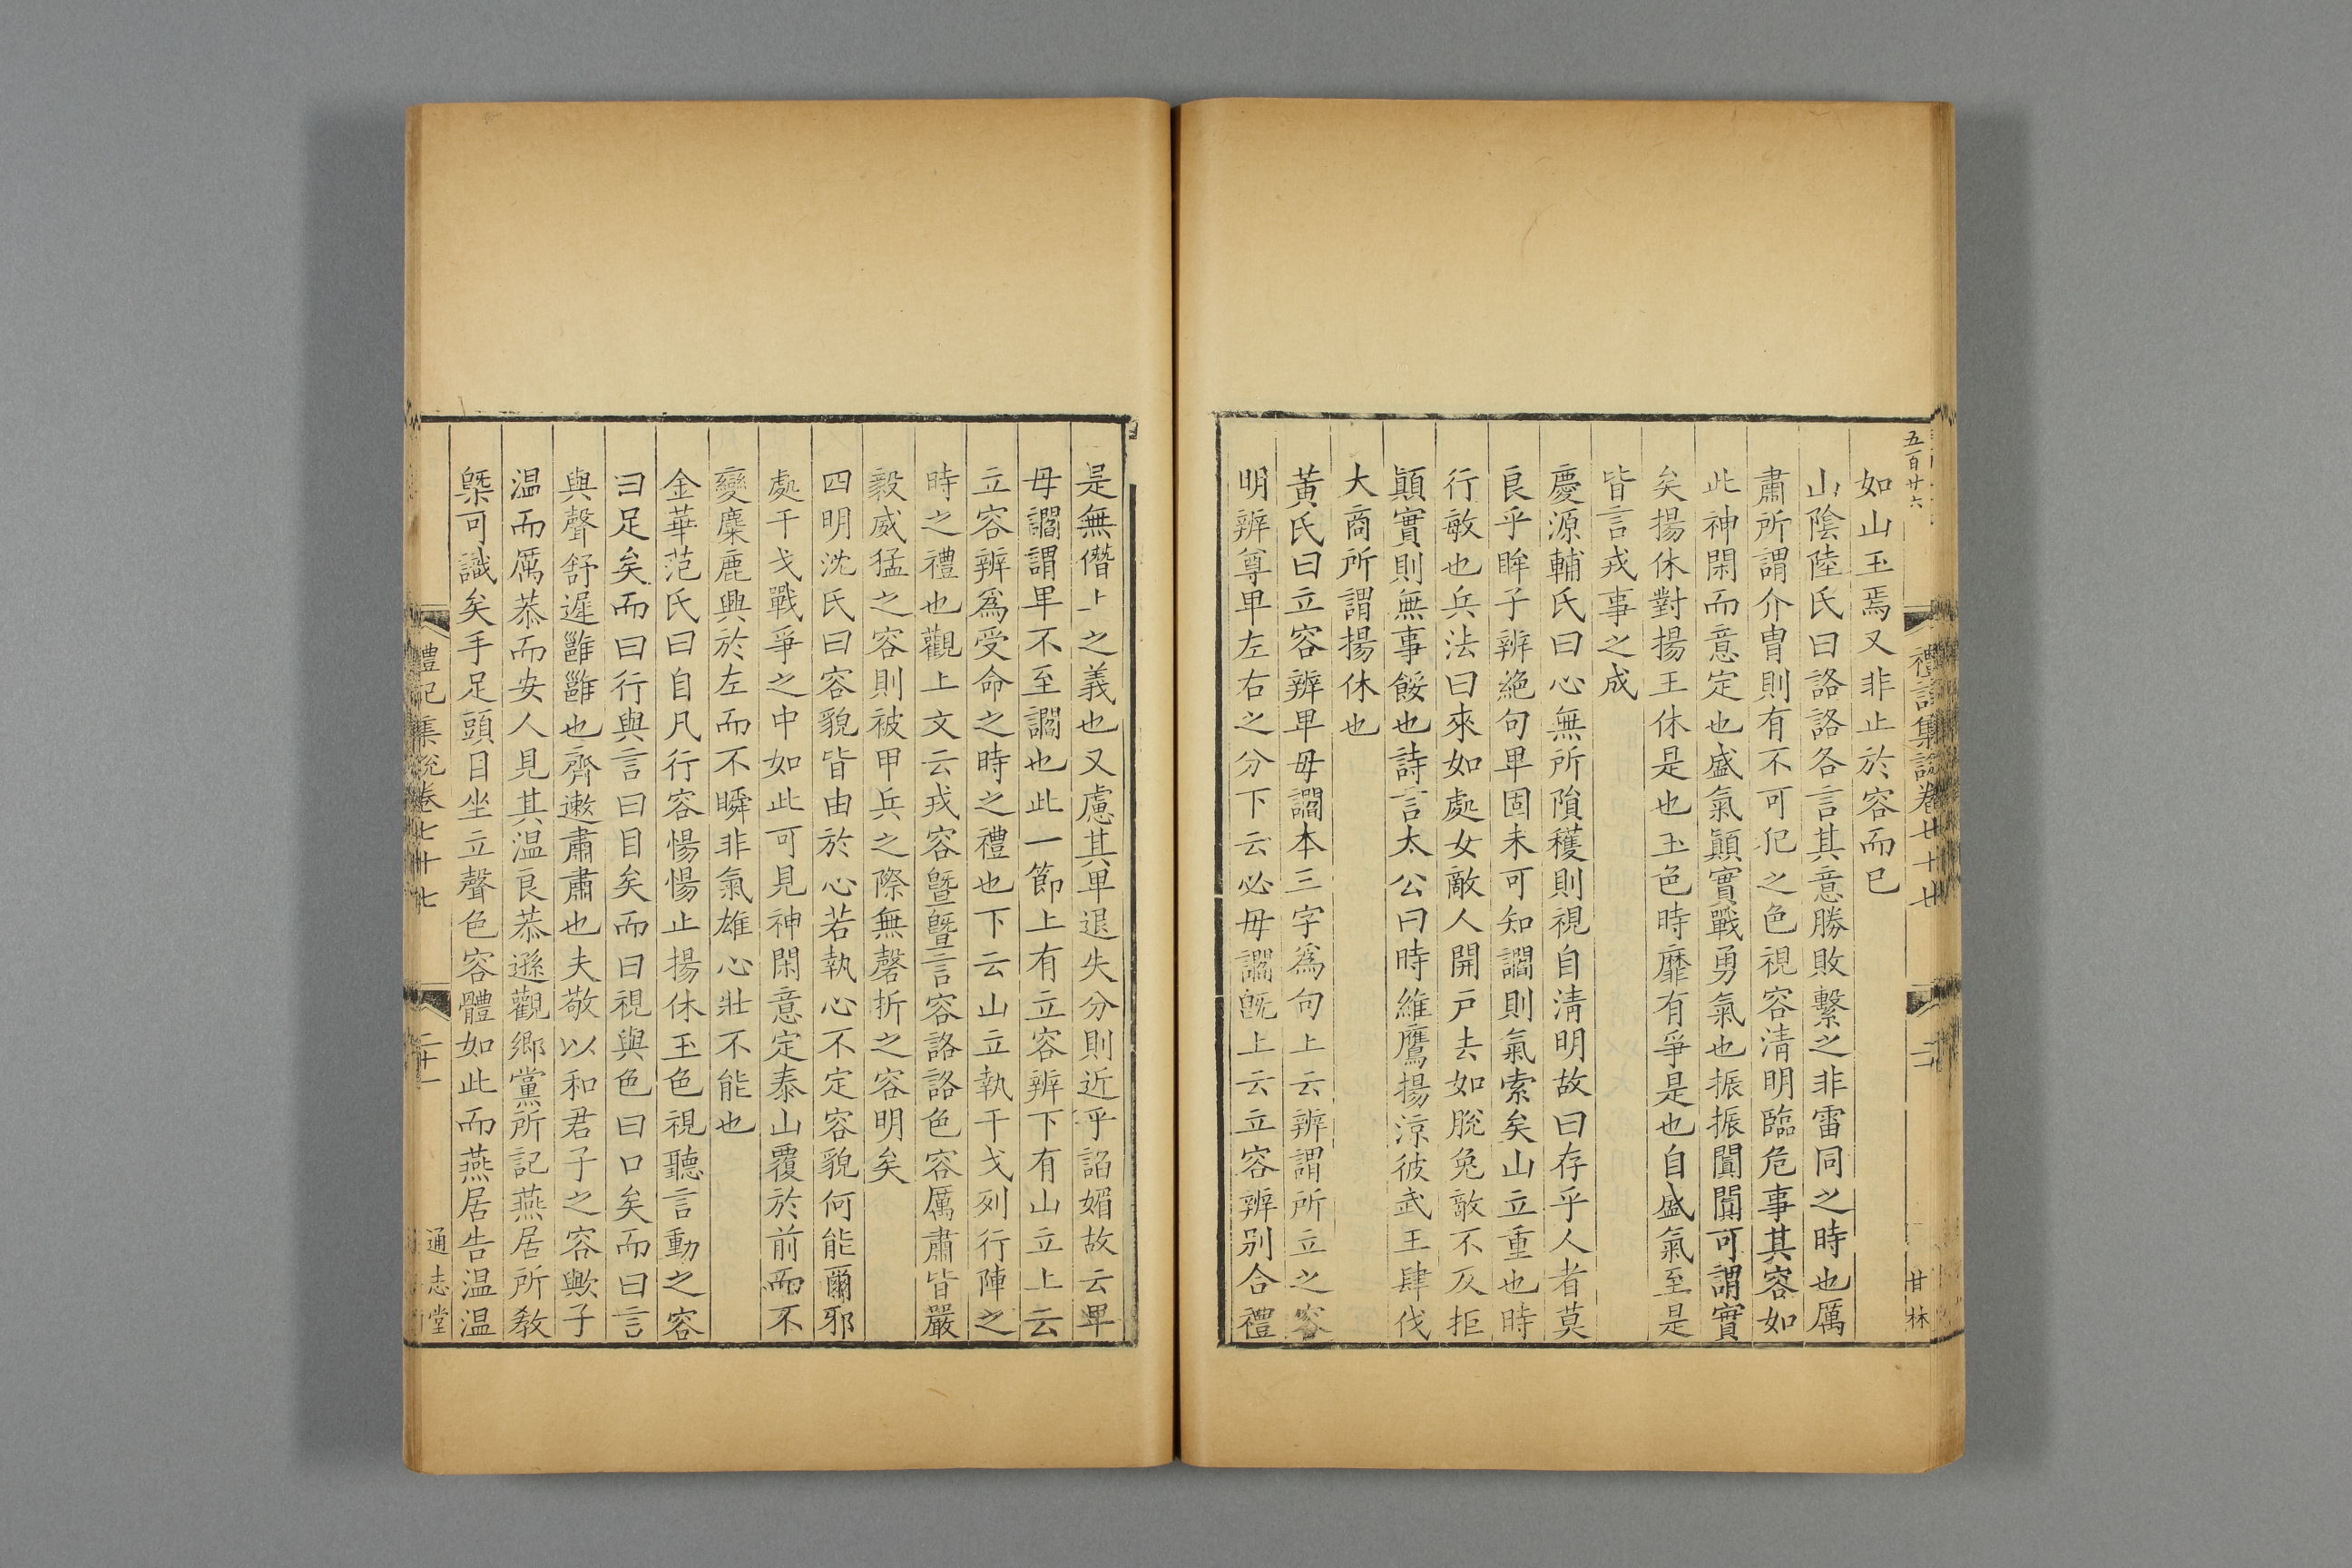 五百廿六
如山玉焉又非止於容而已
山陰陸氏曰詻詻各言其意勝敗繫之非雷同之時也厲
肅所謂介冑則有不可犯之色視容清明臨危事其容如
此神閑而意定也盛氣顚實戰勇氣也振振闐闐可謂實
矣揚休對揚王休是也玉色時靡有爭是也自盛氣至是
皆言戎事之成
慶源輔氏曰心無所隕穫則視自淸明故曰存乎人者莫
良乎眸子辨絶句卑固未可知讇則氣索矣山立重也時
行敏也兵法曰來如處女敵人開戸去如脫兔敵不及拒
顚實則無事餒也詩言太公曰時維鷹揚涼彼武王肆伐
大商所謂揚休也
黃氏曰立容辨卑毋讇本三字爲句上云辨謂所立之容
明辨尊卑左右之分下云必毋讇旣上云立容辨別合禮
甘林
是無僭上之義也又慮其卑退失分則近乎諂媚故云卑
毋讇謂卑不至讇也此一節上有立容辨下有山立上云
立容辨爲受命之時之禮也下云山立執干戈列行陣之
時之禮也觀上文云戎容曁曁言容詻詻色容厲肅皆嚴
毅威猛之容則被甲兵之際無磬折之容明矣
四明沈氏曰容貌皆由於心若執心不定容貌何能爾邪
處干戈戰爭之中如此可見神閑意定泰山覆於前而不
變麋鹿興於左而不瞬非氣雄心壯不能也
金華范氏曰自凡行容愓愓止揚休玉色視聽言動之容
曰足矣而曰行與言曰目矣而曰視與色曰口矣而曰言
與聲舒遲雝雝也齊遬肅肅也夫敬以和君子之容歟子
温而厲恭而安人見其温良恭遜觀鄉黨所記燕居所敎
槩可識矣手足頭目坐立聲色容體如此而燕居告温温
禮記集說卷七十七
二十一
通志堂